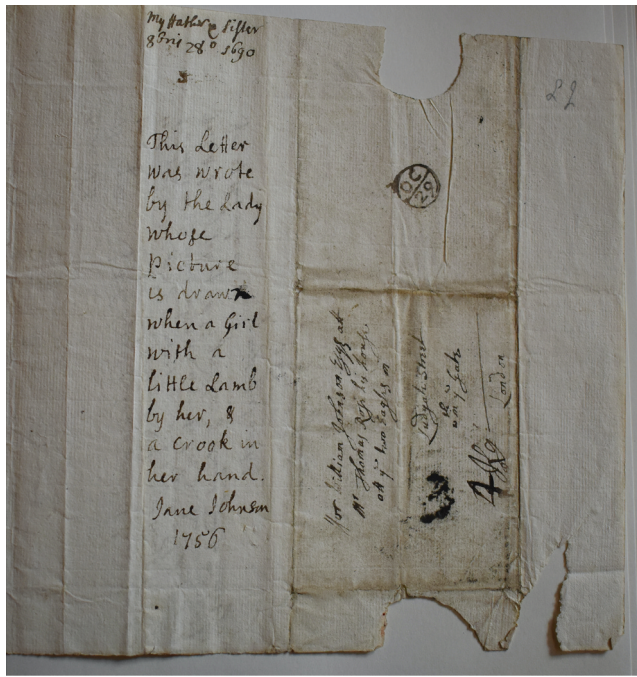 My Father & Sister
8bris 28º 1690
This Letter
was wrote
by the Lady
whose
picture
is drawn
when a Girl
with a
little Lamb
by her, &
a crook in
her hand.
Jane Johnson
1756
OC
29
ffor William Johnson Esqr at
Mr Thomas his house
att ye two Eagles
Street
ye Gate
London